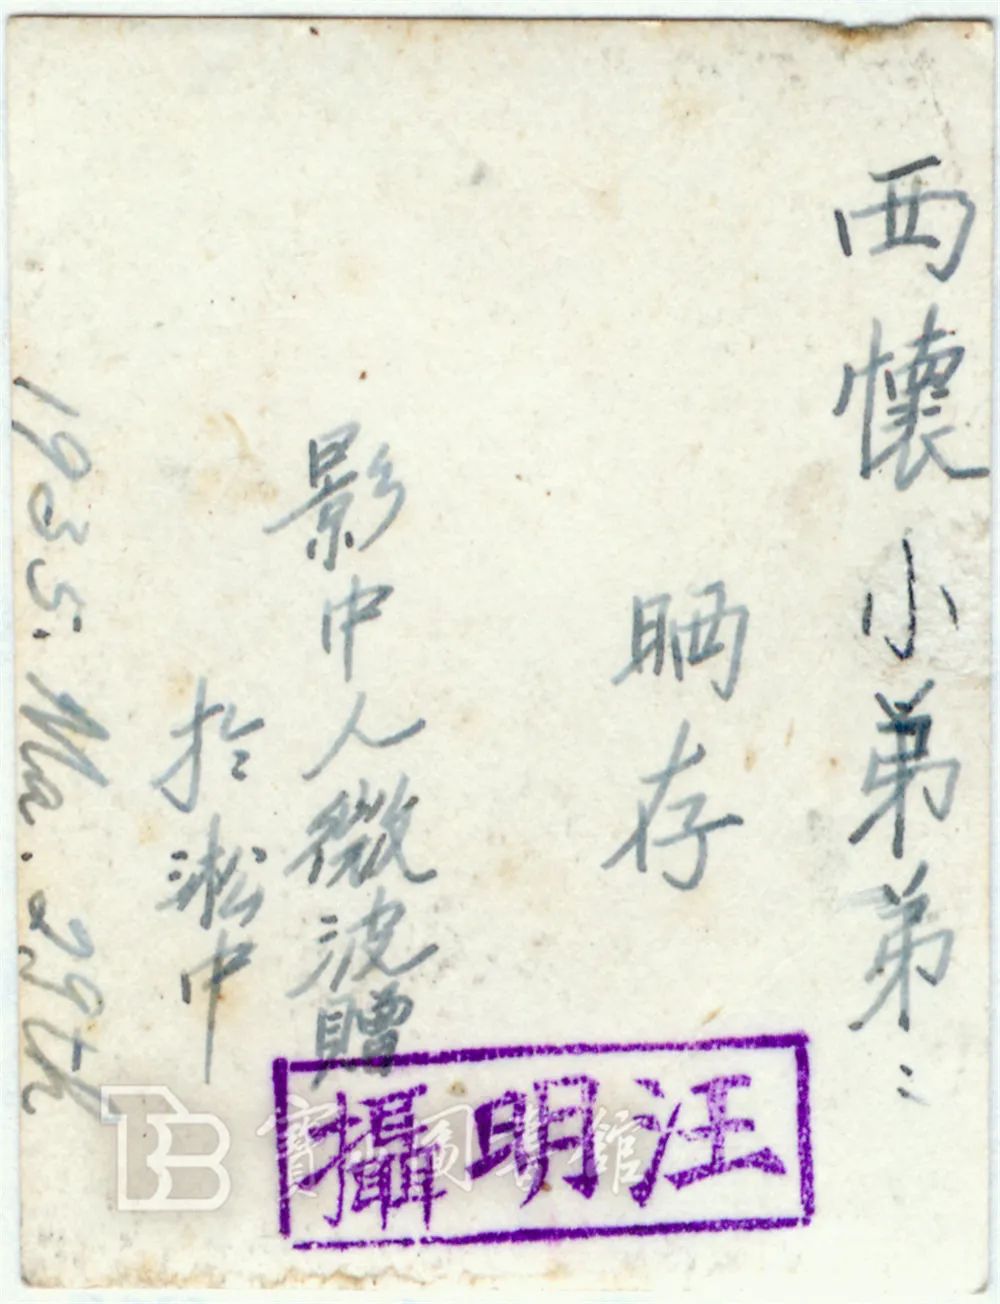 西懷小弟弟：
晒存
影中人微波贈
於淞中
1935. Ma. 29th
攝明汪
寶山図書館